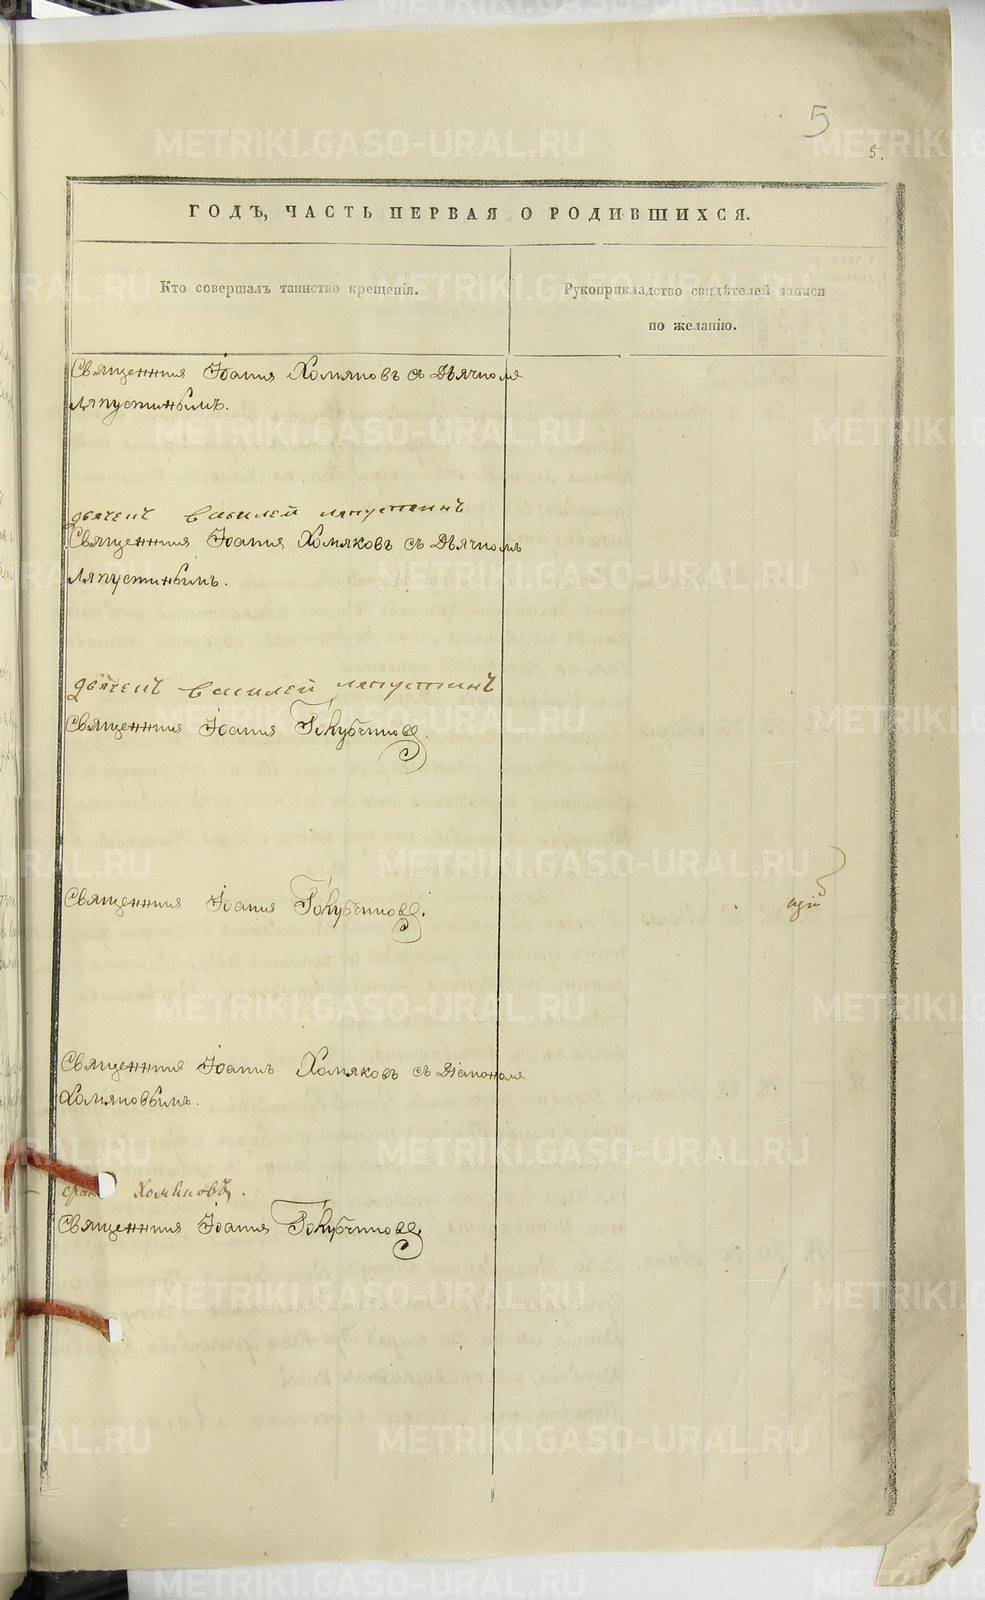 5
5.
ГОДЪ, ЧАСТЬ ПЕРВАЯ О РОДИВШИХСЯ.
Кто совершалъ таинство крещенія.
Рукоприкладство свидѣтелей записи
по желанію.
Священник Іоанн Хомяковъ съ Дьячкомъ
Ляпустинымъ.
дьячекъ василей ляпустинъ
Священник Іоанн Хомяковъ съ Дьячкомъ
Ляпустинымъ.
дьячекъ василей ляпустинъ
Священник Іоанн
Священник Іоанн
Священник Іоаннъ Хомяковъ съ Діакономъ
Хомяковымъ.
Хомяковъ.
Священник Іоанн
METRIKI.GASO-URAL.RU